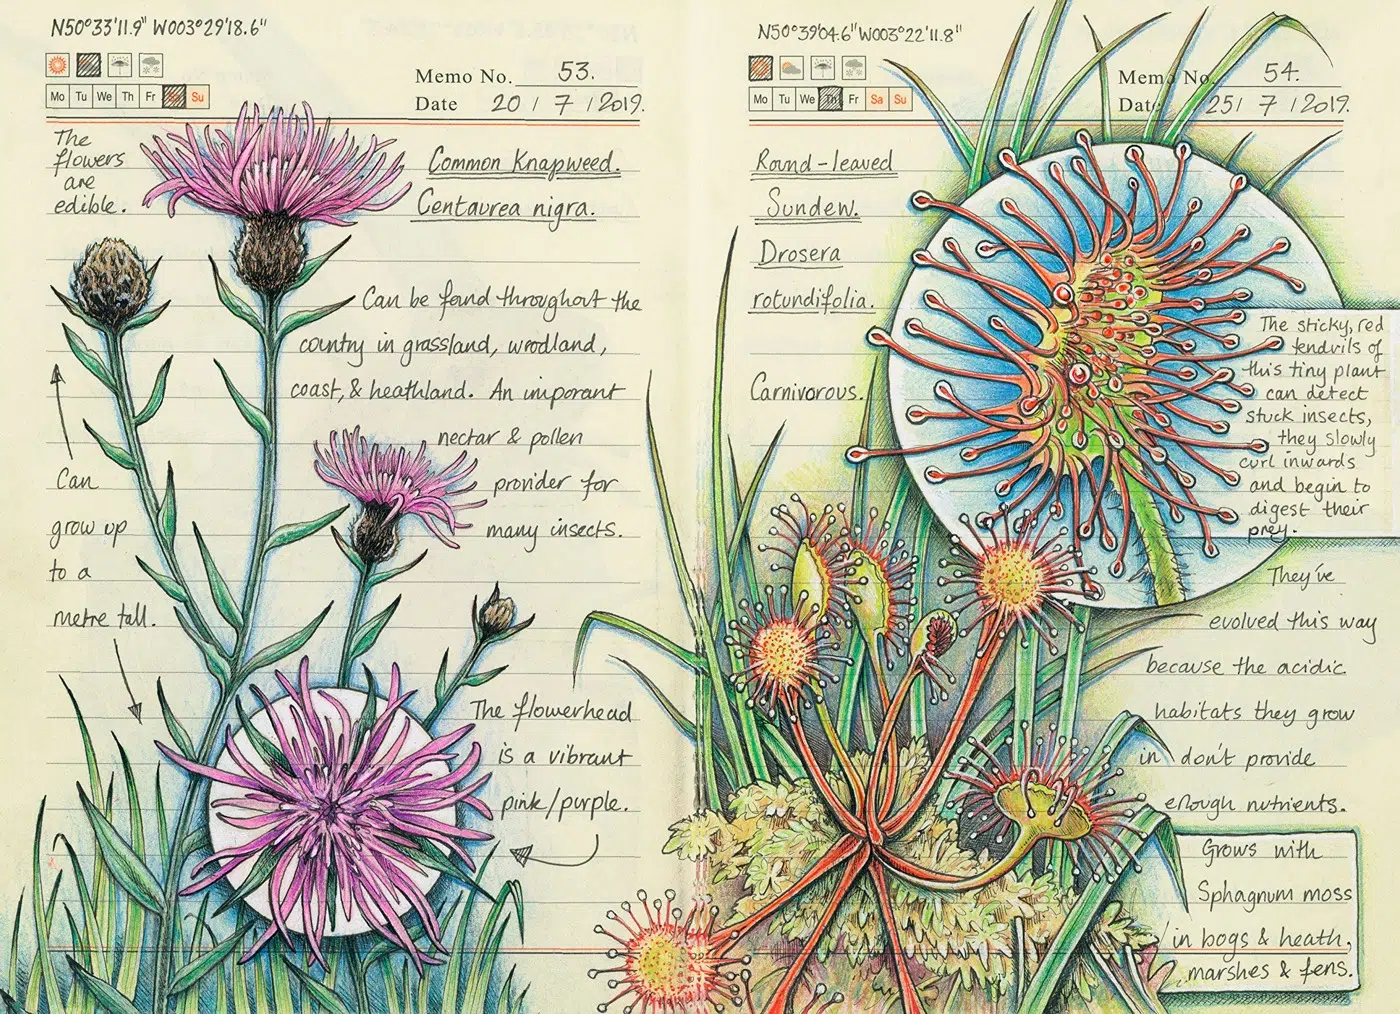 N50°33'11.9" W003°29'18.6"
Memo No. 53.
Mo Tu We Th Fr Sa Su
Date 20 / 7 / 2019.
The
flowers
are
edible.
Common Knapweed.
Centaurea nigra.
Can be found throughout the
country in grassland, woodland,
coast, & heathland. An imporant
nectar & pollen
provider for
many insects.
Can
grow up
to a
metre tall.
The flowerhead
is a vibrant
pink/purple.
N50°39'04.6" W003°22'11.8"
Memo No. 54.
Mo Tu We Th Fr Sa Su
Date 25 / 7 / 2019.
Round-leaved
Sundew.
Drosera
rotundifolia.
Carnivorous.
The sticky, red
tendrils of
this tiny plant
can detect
stuck insects,
they slowly
curl inwards
and begin to
digest their
prey.
They've
evolved this way
because the acidic
habitats they grow
in don't provide
enough nutrients.
Grows with
Sphagnum moss
in bogs & heath,
marshes & fens.